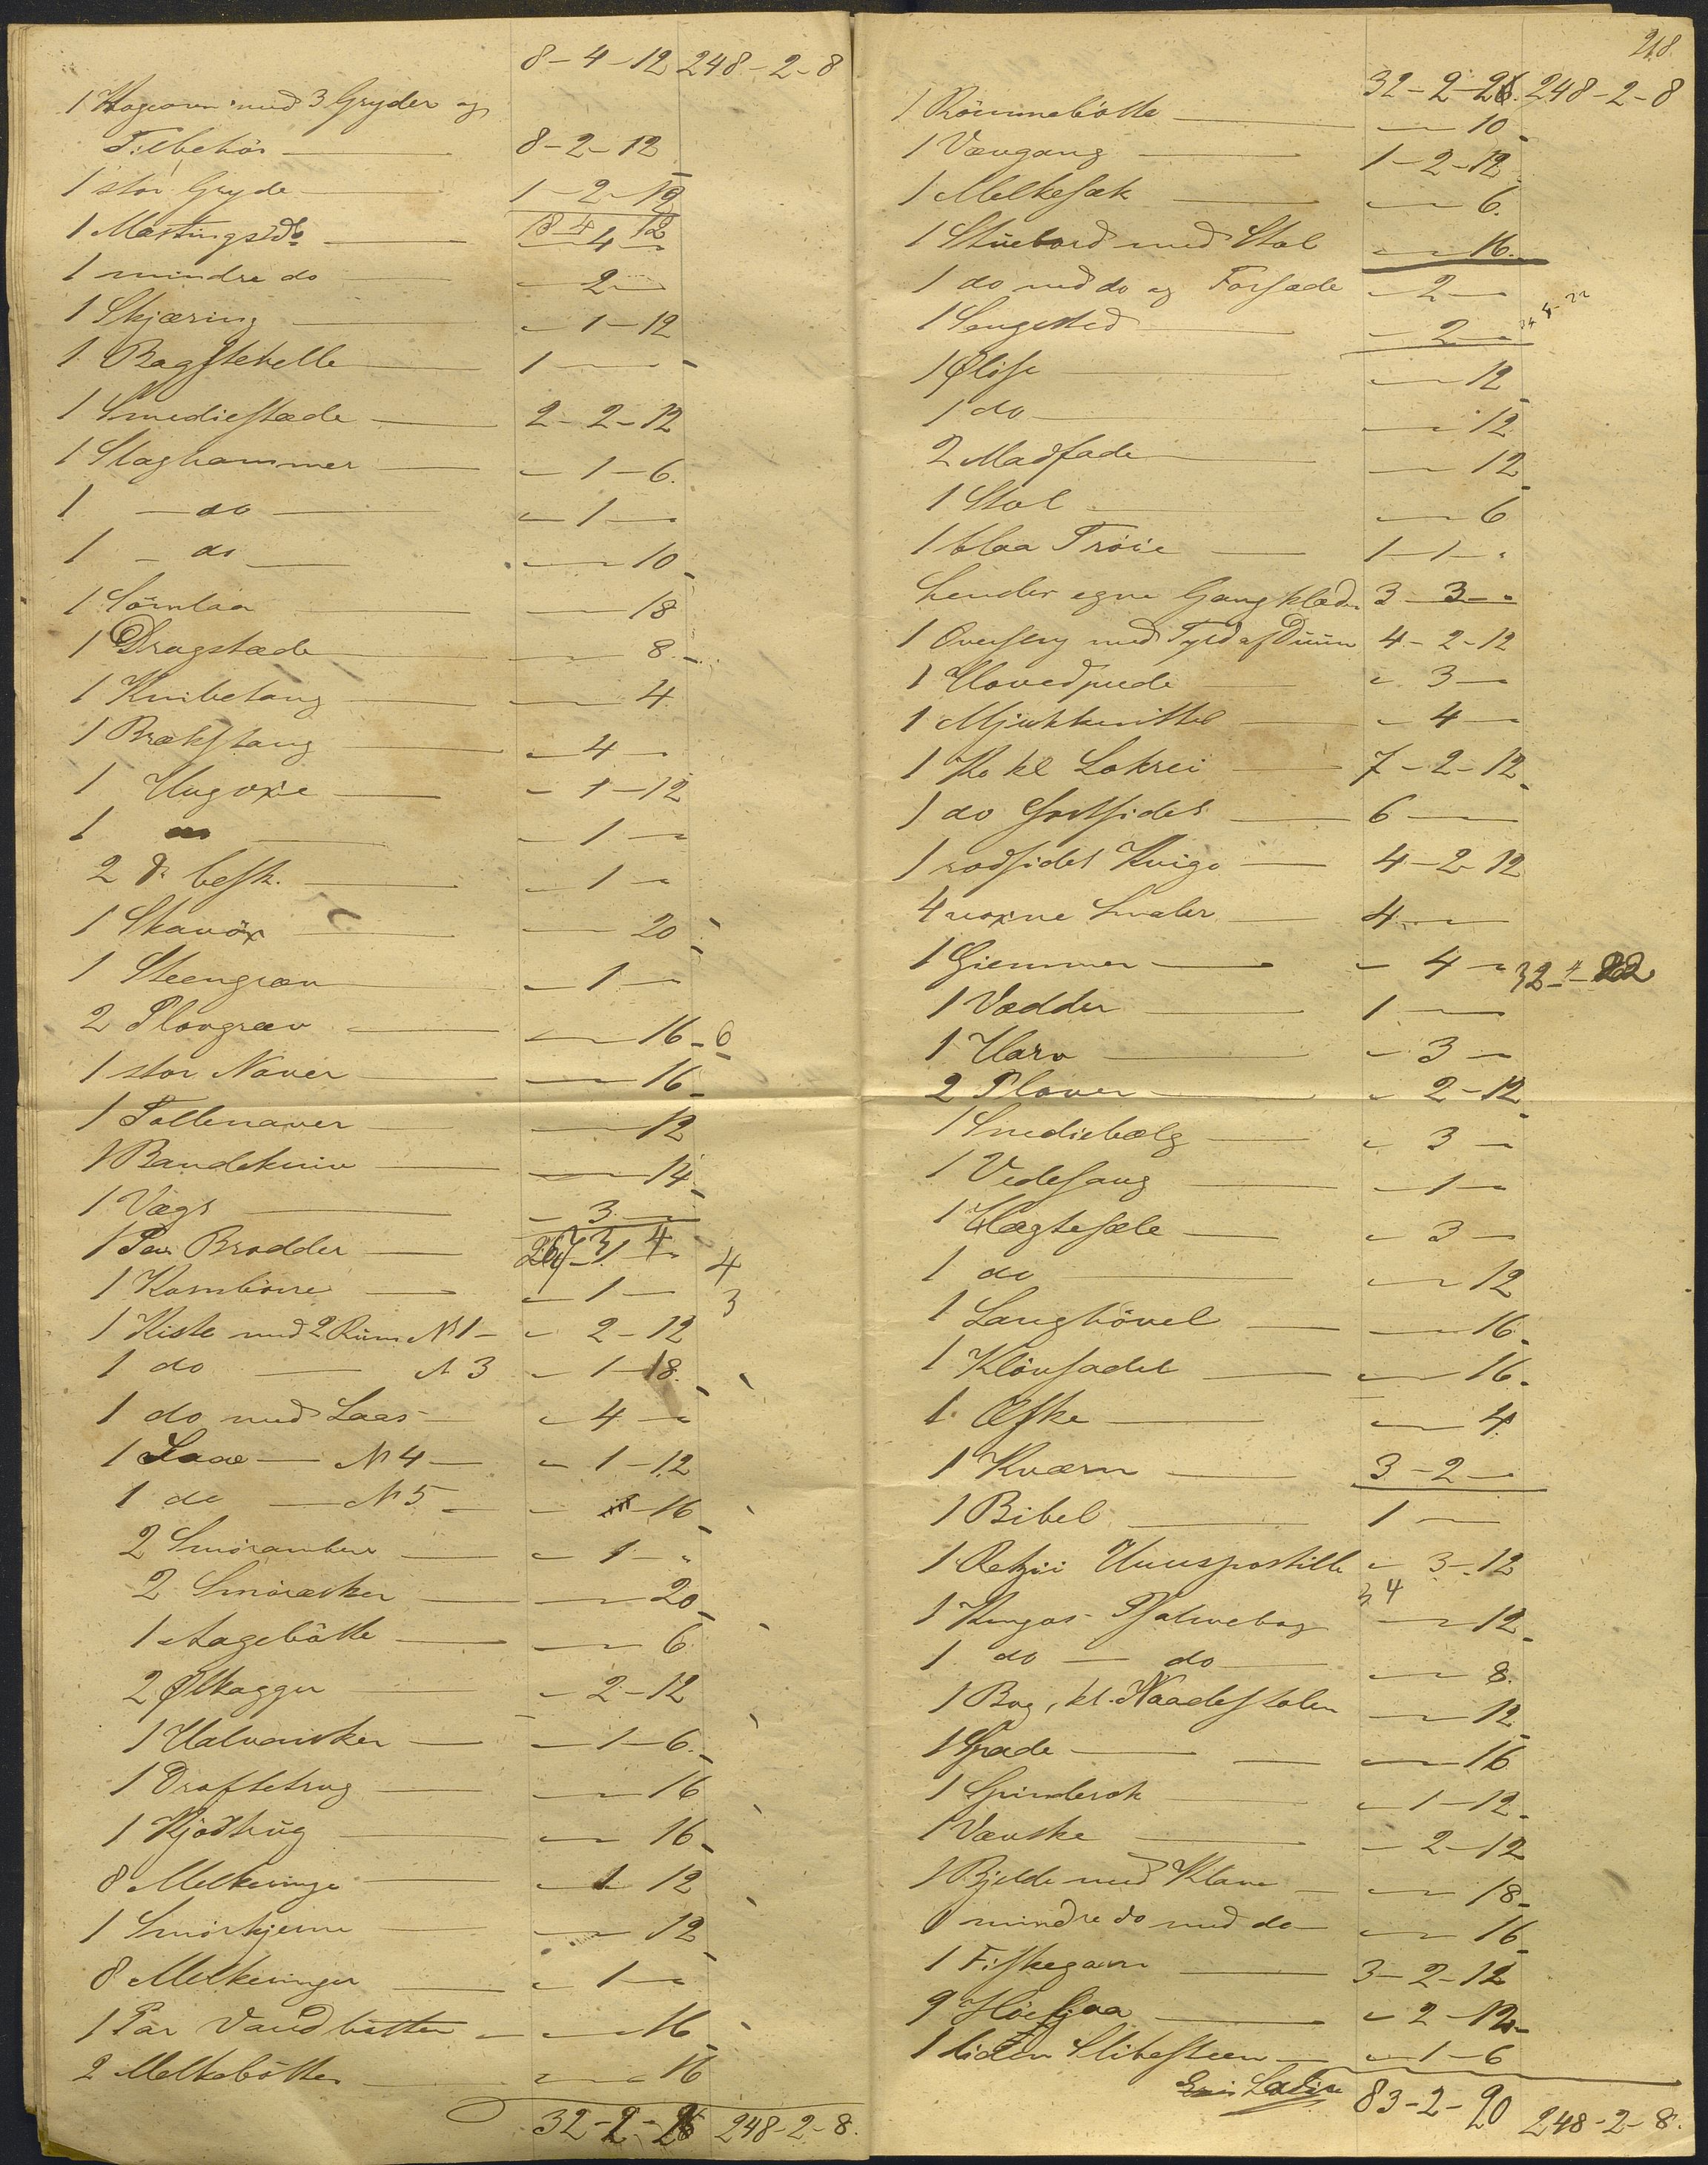 8-4-12 248-2-8
1 Kogeovn med 3 Gryder og
Tilbehör 8-2-12
1 stor Gryde 1-2-12
18 4 12
1 Mastings do - 4 -
1 mindre do - 2 -
1 Skjæring - 1-12
1 Bagstehelle 1 - -
1 Smediestæde 2-2-12
1 Slaghammer - 1-6.
1 - do - - 1 -
1 - do - 10
1 Sömlaa - 18
1 Dragstæde - 8
1 Knibetang - 4
1 Brækstang - 4 -
1 Hugoxe - 1-12
1 do - 1 -
2 do besk. - 1 -
1 Skavöx - 20
1 Steengræv - 1 -
2 Plovgræv - 16
1 stor Naver - 16
1 Tollenaver - 12
1 Bandekniv - 14
1 Vægt - 3 -
1 Par Brodder - 1 - 4
1 Kornbörre - 1 - 3
1 Kiste med 2 Rum N 1 - 2-12
1 do N 3 - 1-18.
1 do med Laas - 4 -
1 Laae N 4 - 1-12
1 do N 5 - 16
2 Smörambar - 1 -
2 Smöræsker - 20
1 Aagebötte - 6
2 Ølkagger - 2-12
1 Halvanker - 1-6.
1 Droftetrug - 16
1 Kjödtrug - 16
8 Melkeringe - 1 12
1 Smörkjerne - 12
8 Melkeringer - 1 -
1 Par Vandbötter - 16
2 Melkebötter - 16
32-2-26 248-2-8.
218.
32-2-26. 248-2-8
1 Römmebötte - 10
1 Vævgang 1-2-12
1 Melkesæk - 6.
1 Stuebord med Stol - 16.
1 do med do og Forsæde - 2 -
1 Sengested - 2 -
1 Ølöse - 12
1 do - 12
2 Madfade - 12
1 Stol - 6
1 blaa Tröie 1-1-
hendes egne Gangklæder 3 3 -
1 Overseng med Fyld af Duun 4-2-12
1 Hovedpude - 3 -
1 Mjukkenittel - 4 -
1 Ko kl Lokrei 7-2-12
1 do sortsidet 6 -
1 rodsidet Kvige 4-2-12
4 voxne Smaler 4 -
1 Giemmer - 4 - 32-4-22
1 Vædder 1 -
1 Harv - 3 -
2 Plover - 2-12
1 Smediebælg - 3 -
1 Vedesaug - 1 -
1 Hægtesæle - 3 -
1 do - 12
1 Langhövel - 16
1 Klövsadel - 16.
1 Æske - 4
1 Kværn 3-2-
1 Bibel 1 -
1 Retzii Huuspostille - 3-12
3 4
1 Kingos Psalmebog - 12
1 do - do - 8.
1 Bog, kl. Naadestolen - 12
1 Spade - 16
1 Spinderok - 1-12
1 Vævske - 2-12
1 Bjelde med Klave - 18
1 mindre do med do - 16
1 Fiskegarn 3-2-12
9 Höeljaa - 2-12
1 liden Slibesteen - 1-6
Lateris 83-2-20 248-2-8.